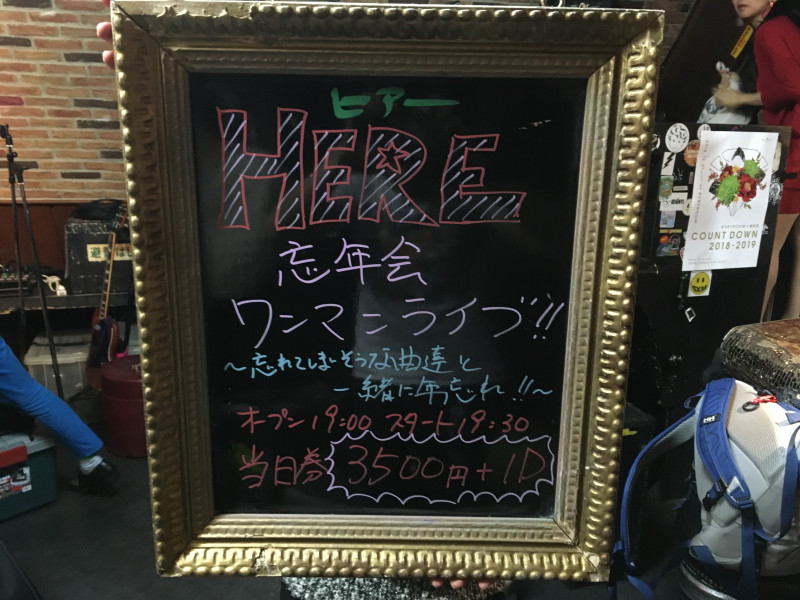 ヒアー
HERE
忘年会
ワンマンライブ!!
～忘れてしまいそうな曲達と
一緒に年忘れ!!～
オープン 19:00 スタート 19:30
当日券 3500円+1D
COUNT DOWN
2018-2019